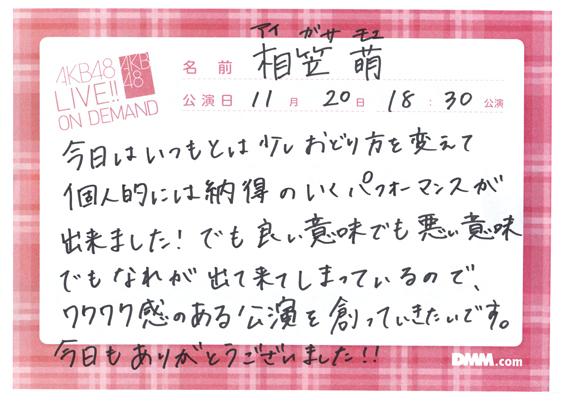 アイ ガサ モエ
AKB48 LIVE!! ON DEMAND
AKB48
名前 相笠 萌
公演日 11月 20日 18:30公演
今日はいつもとは少しおどり方を変えて
個人的には納得のいくパフォーマンスが
出来ました!でも良い意味でも悪い意味
でもなれが出て来てしまっているので、
ワクワク感のある公演を創っていきたいです。
今日もありがとうございました!!
DMM.com